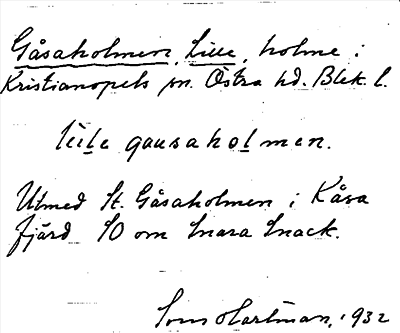 Gåsaholmen, Lille, holme i
Kristianopels sn. Östra hd. Blek. l.
lille gausaholmen.
Utmed St. Gåsaholmen i Kåsa
fjärd SO om Snara Snack.
Hartman, 1932